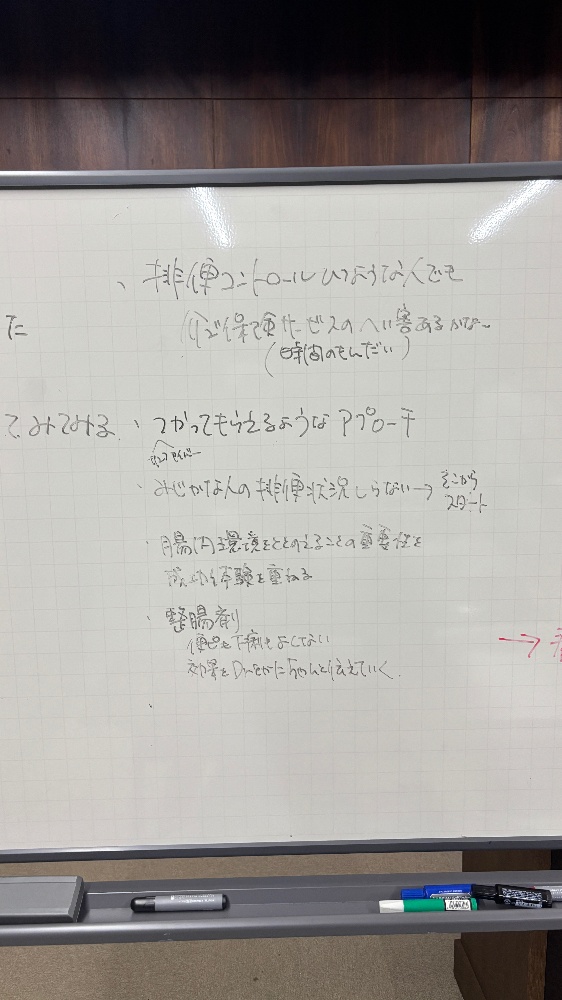 、排便コントロールひつような人でも
た
介ご保険サービスのへい害あるかな~
(時間のもんだい)
てみてみる
・つかってもらえるようなアプローチ
・みじかな人の排便状況しらない→ そこから
スタート
・腸内環境をととのえることの重要性を
成功経験を重ねる
・整腸剤
便ピも下痢もよくない
効果をDrやかたにちゃんと伝えていく
→